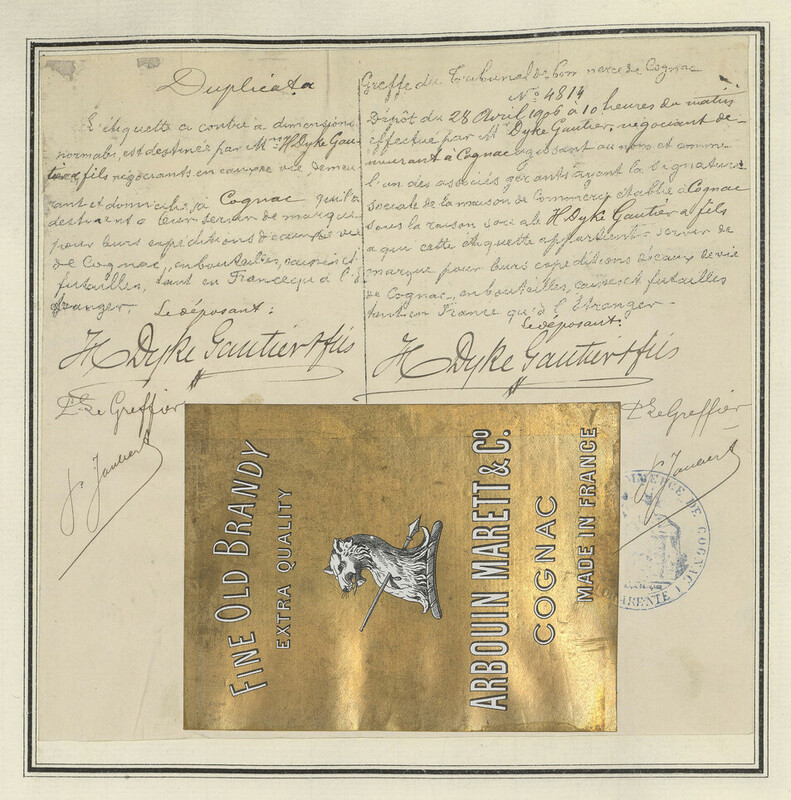 Duplicata
L'étiquette ci contre a dimensions
normales, est destinée par Mrs H Dyke Gau-
tier & fils négociants en eaux de vie demeu-
rant et domiciliés à Cognac qu'ils
destinent à leur servir de marque
pour leurs expéditions d'eaux de vie
de Cognac, en bouteilles, caisses et
futailles, tant en France qu'à l'é-
tranger.
Le déposant:
H Dyke Gautier & fils
Pr Le Greffier
Greffe du Tribunal de Commerce de Cognac
No 4814
Dépôt du 28 Avril 1906 à 10 heures du matin
effectué par Mr Dyke Gautier, négociant de-
meurant à Cognac agissant au nom et comme
l'un des associés gérants ayant la signature
sociale de la maison de Commerce établie à Cognac
sous la raison sociale H Dyke Gautier & fils
à qui cette étiquette appartient servir de
marque pour leurs expéditions d'eaux de vie
de Cognac, en bouteilles, caisses et futailles
tant en France qu'à l'Etranger.
Le déposant:
H Dyke Gautier & fils
Pr Le Greffier
FINE OLD BRANDY
EXTRA QUALITY
ARBOUIN MARETT & Co.
COGNAC
MADE IN FRANCE
COMMERCE DE COGNAC